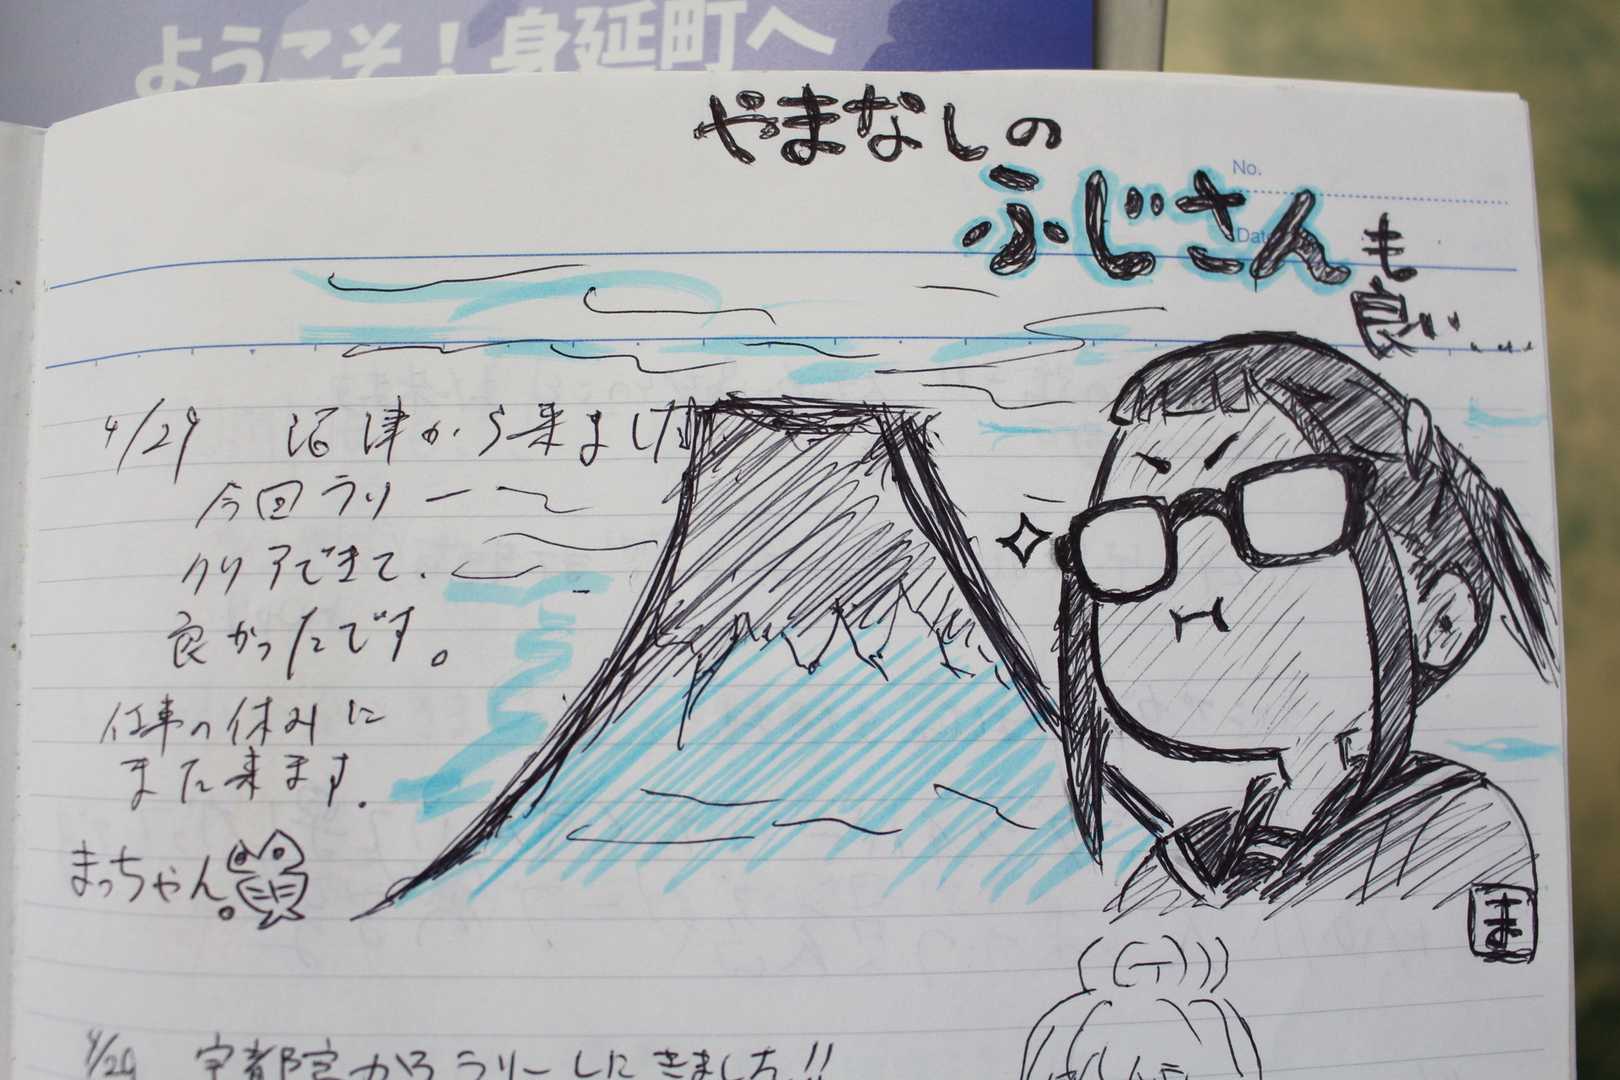 ようこそ！身延町へ
No.
Date
やまなしの
ふじさん
も
良い……
4/29 沼津から来ました
今回ラリー
クリアできて、
良かったです。
仕事の休みに
また来ます。
まっちゃん。
ま
4/29 宇都宮からラリーしにきました!!